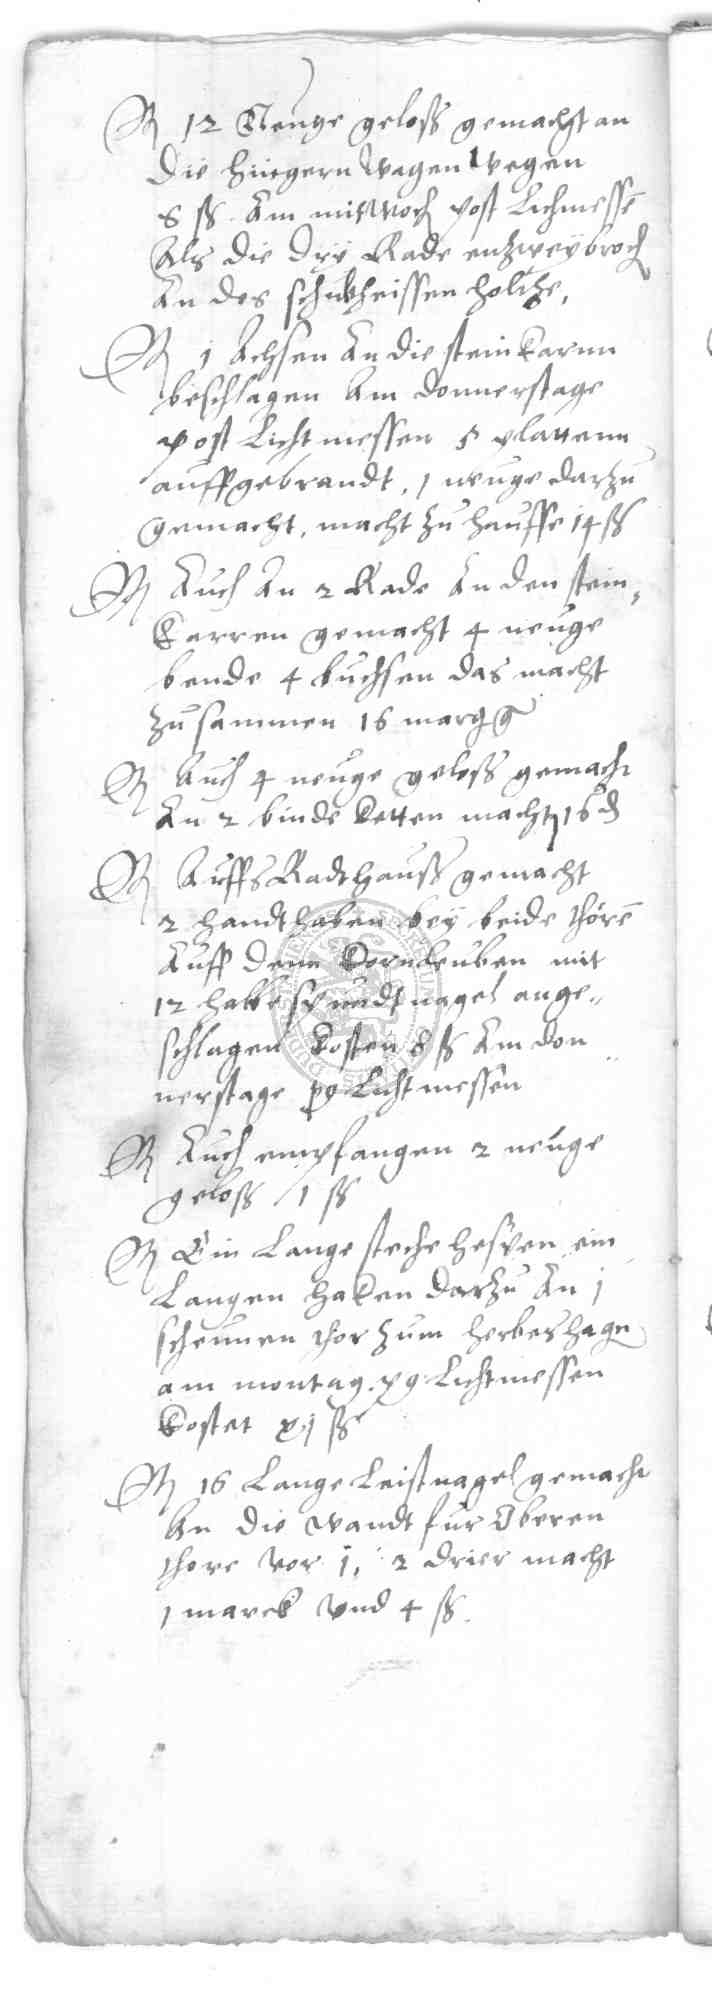 R 12 Neuge geloss gemacht an
die hungern Wagen wegen
8 ss Am mittwoch post Lichmessē
Als die dry Rade enzweybroch
An des schultheissen holtze,
R 1 Achsen An die steinkarnn
beschlagen Am donnerstage
post Lichtmessen 5 plattenn
auffgebrandt, 1 neuge darzu
gemacht, macht zu hauffe 14 ss
R Auch An 2 Rade An den stein,
karren gemacht 4 neuge
bende 4 buchsen das macht
zusammen 16 marg
R Auch 4 neuge geloss gemacht
An 2 binde ketten macht 16 d
R Auffs Radthauss gemacht
2 handthaben bey beide thorē
Auff denn Kornleuben mit
12 halbe spundtnagel ange,,
schlagen kosten 8 ss Am don,,
nerstage pq Lichtmessen
R Auch empfangen 2 neuge
geloss 1 ss
R Ein Lange steche hespen ein
Langen haken darzu An 1
scheunen thor zum herbeshagn
am montag. pq Lichtmessen
kostet xj ss
R 16 Lange Leistnagel gemacht
An die wandt fur Oberen
thore vor 1, 2 drier macht
1 marck vnd 4 ss.